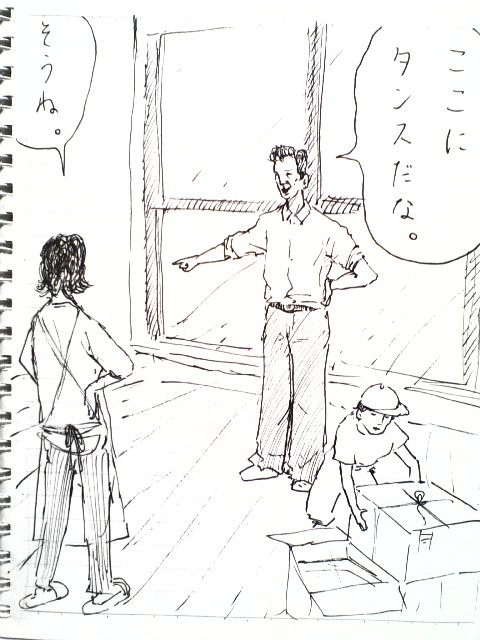 ここに
タンスだな。
そうね。